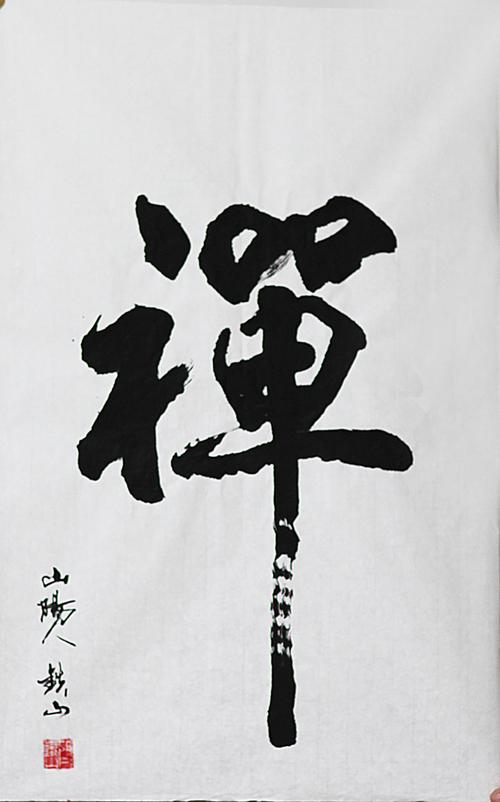 禪
山陽人 鉄山